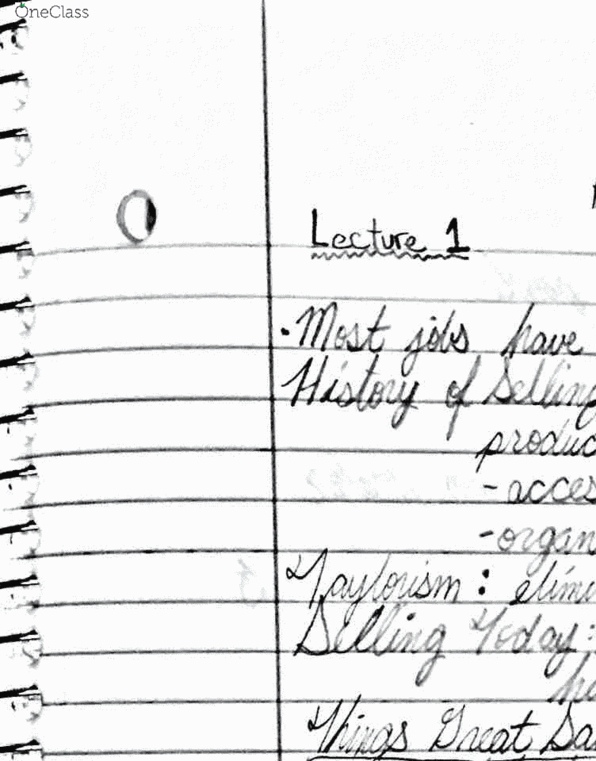 OneClass
Lecture 1
• Most jobs have
History of Selling
produc
- acces
- organ
Taylorism : elimi
Selling Today:
ha
Things Great Sa